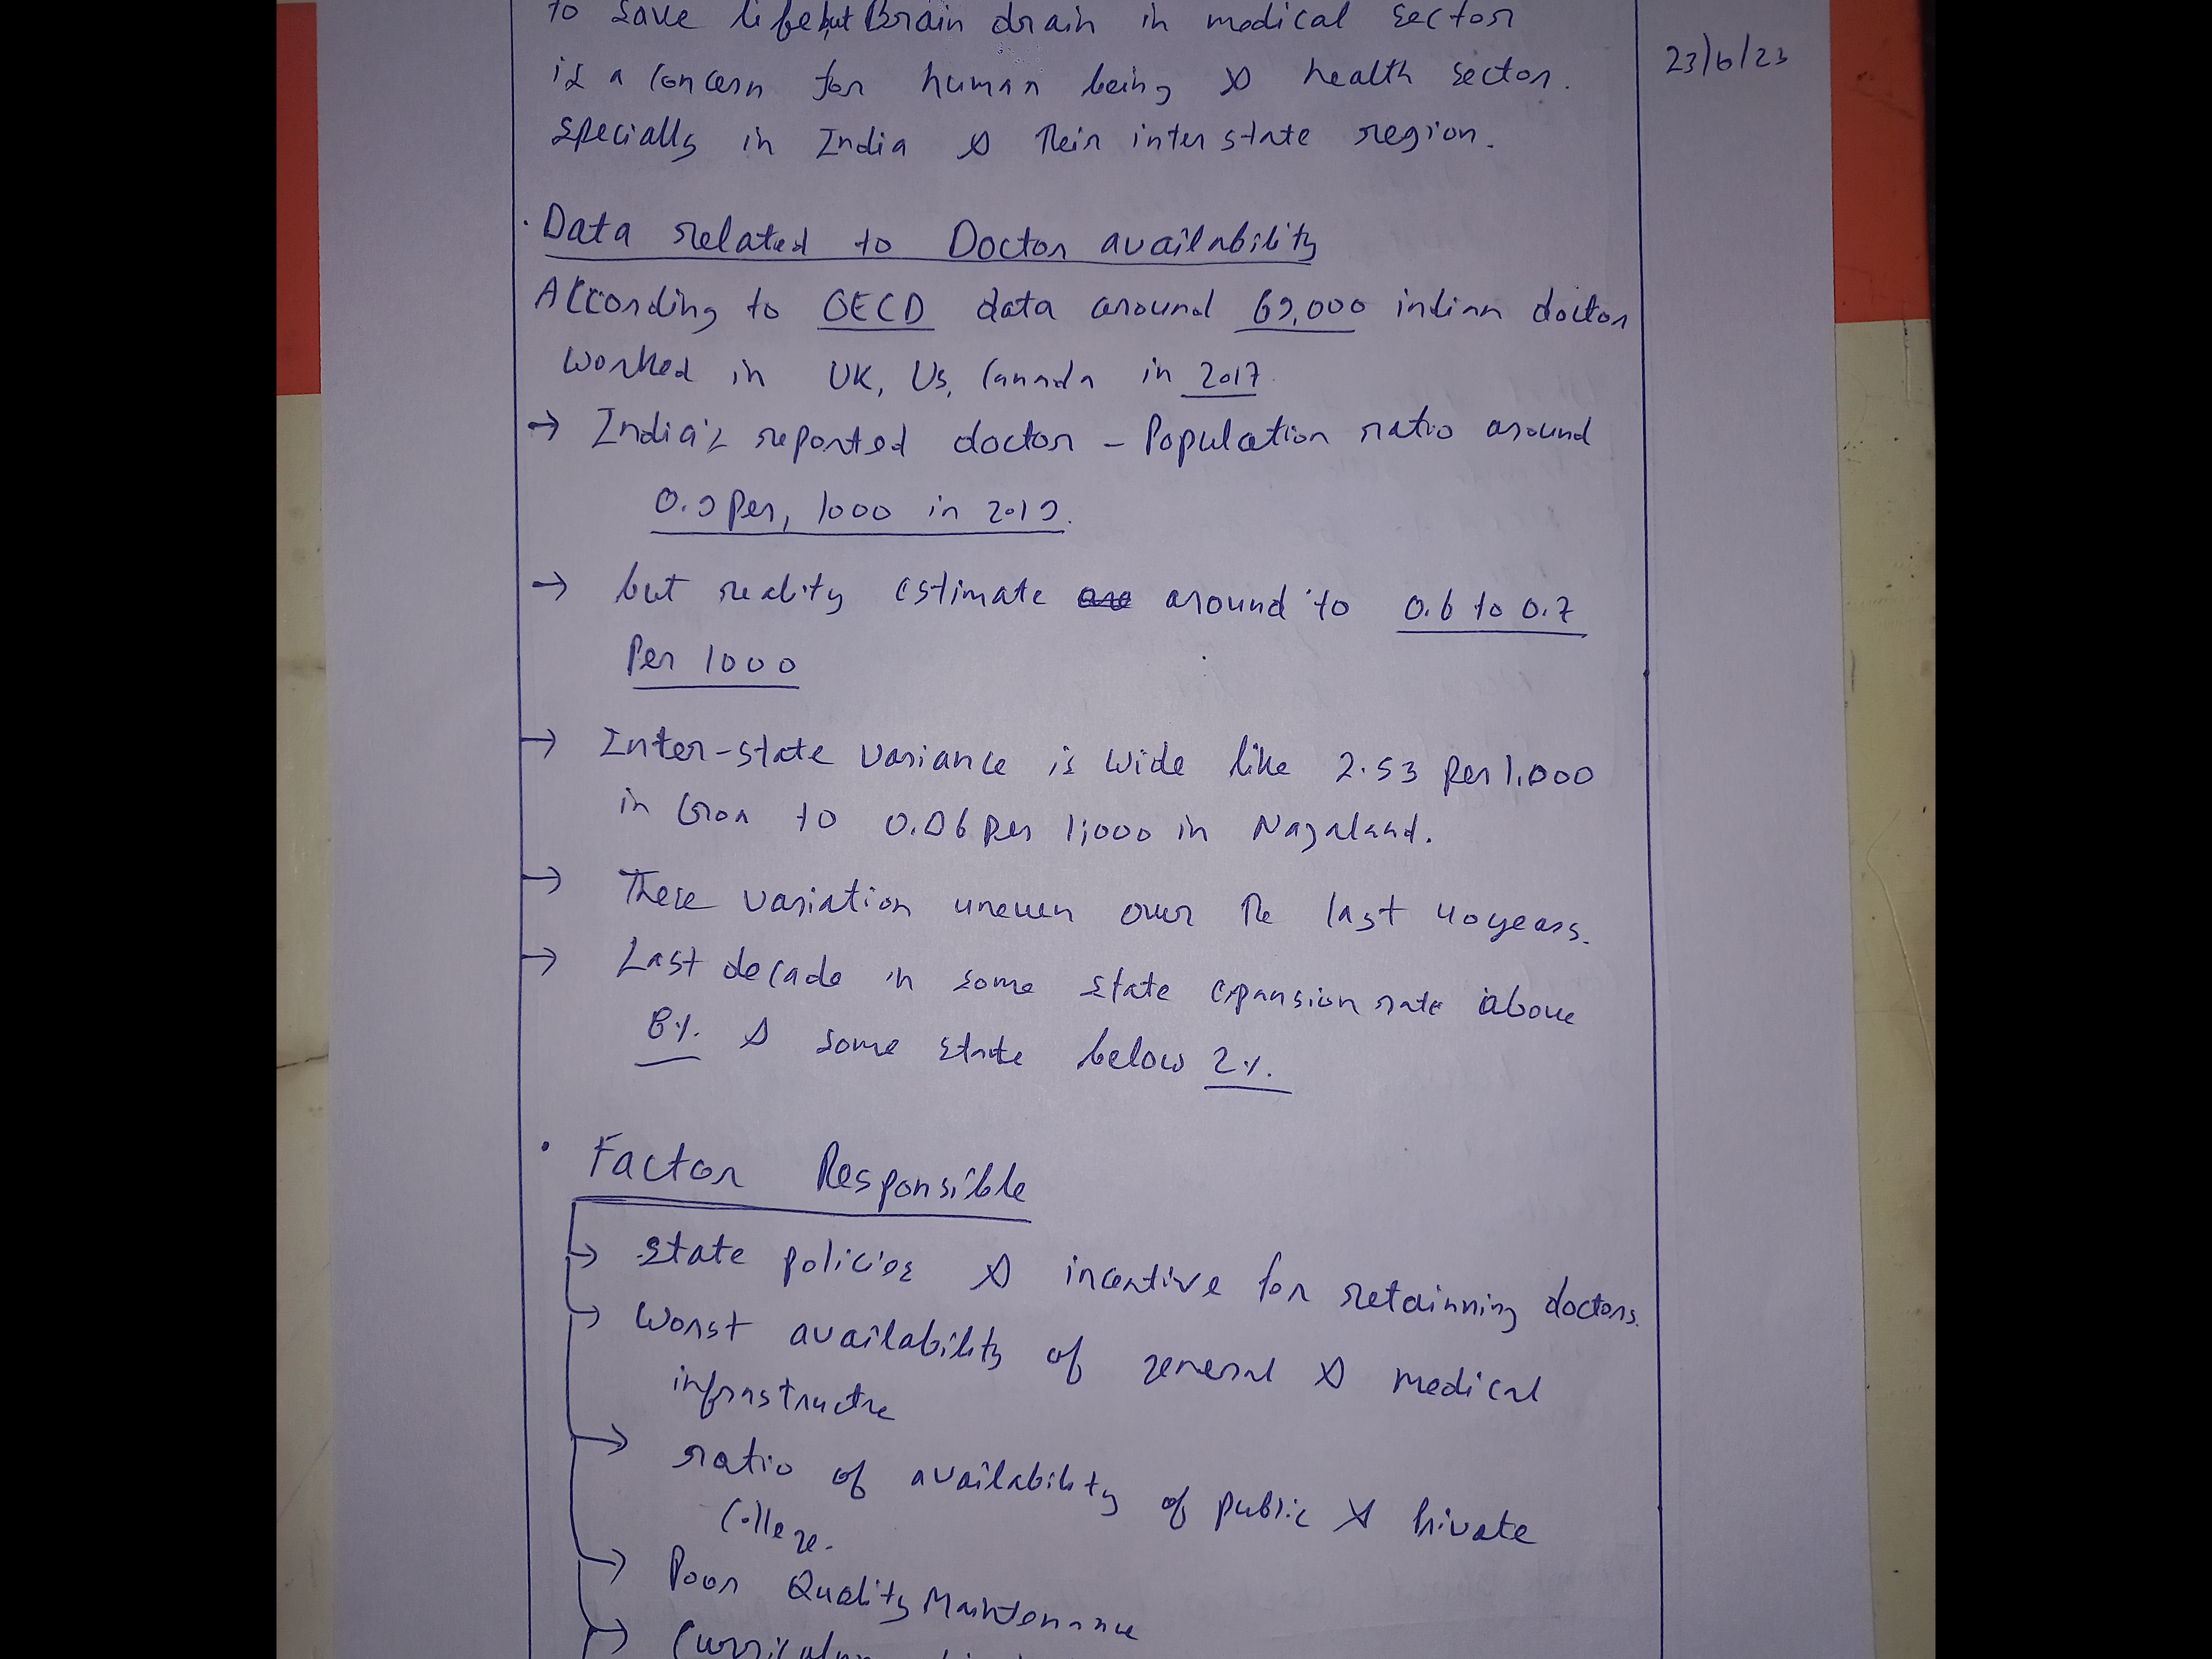 to save life but Brain drain in medical sector
23/6/23
is a concern for human being & health sector.
specially in India & their inter state region.
· Data related to Doctor availability
According to OECD data around 69,000 indian doctor
worked in UK, Us, Canada in 2017
→ India's reported doctor - Population ratio around
0.9 Per, 1000 in 2019.
→ but reality estimate around to 0.6 to 0.7
Per 1000
→ Inter-state variance is wide like 2.53 per 1,000
in Goa to 0.06 per 1,000 in Nagaland.
→ These variation uneven over the last 40 years.
→ Last decade in some state expansion rate above
% & some state below 2%.
· Factor Responsible
→ state policies & incentive for retainning doctors.
→ Worst availability of general & medical
infrastructre
→ ratio of availability of public & Private
College.
→ Poor Quality Maintenance
→